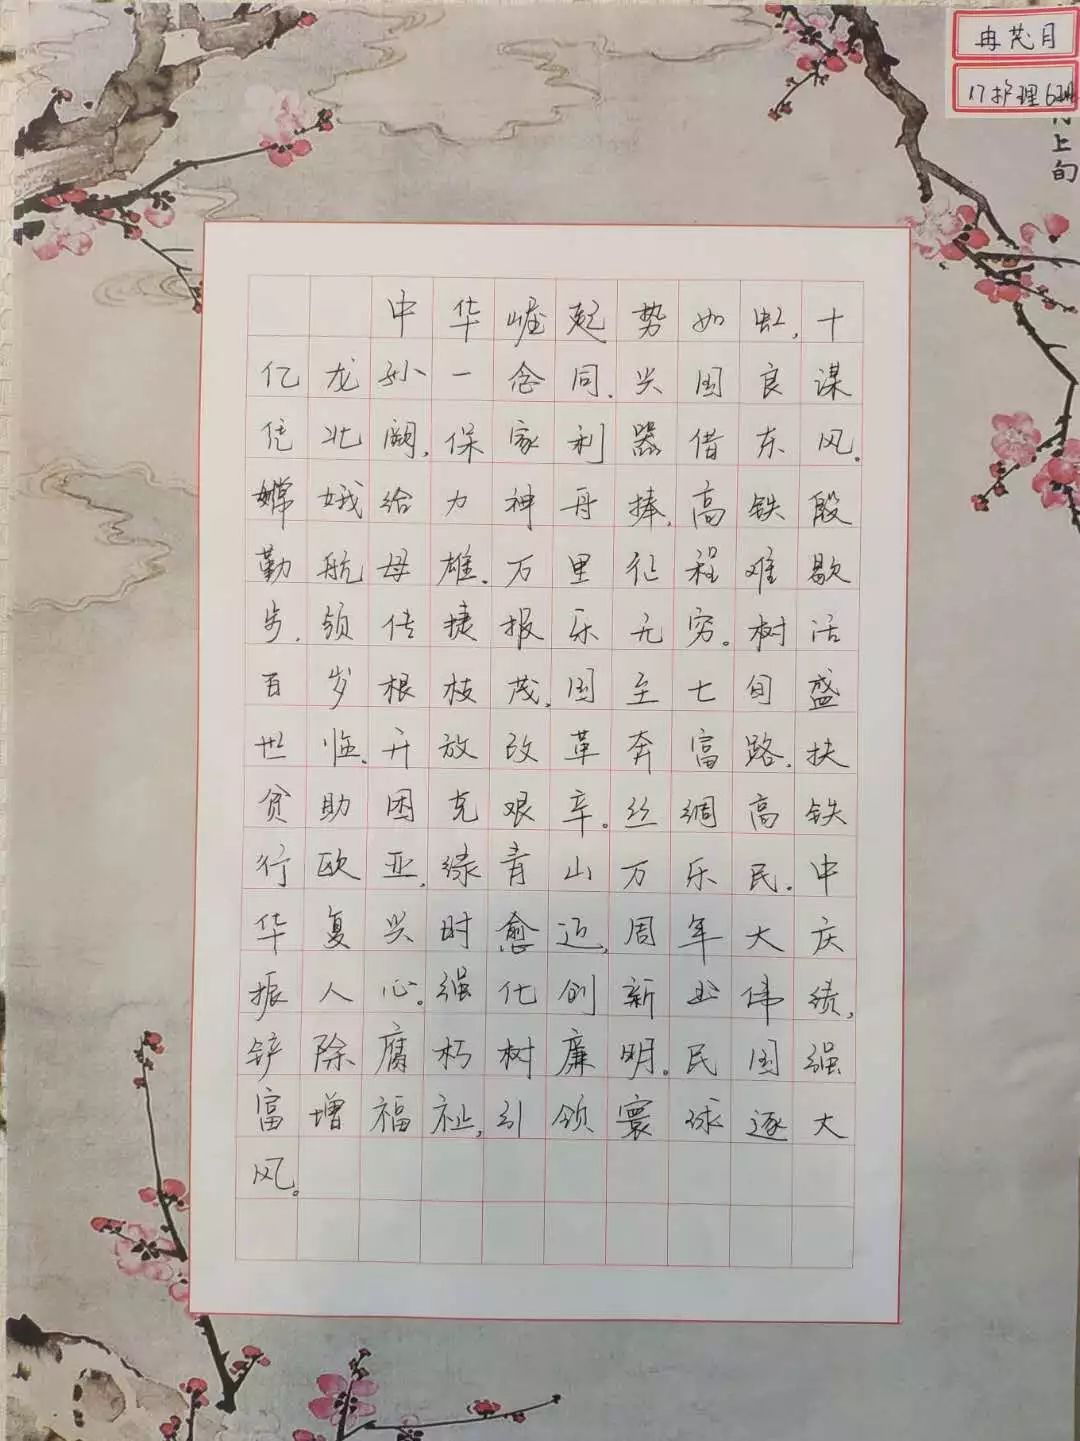 冉茂月
17护理6班
上旬
中华崛起势如虹,十
亿龙孙一念同.兴国良谋
凭北阙,保家利器借东风.
嫦娥给力神舟捧,高铁殷
勤航母雄.万里征程难歇
步,频传捷报乐无穷。树活
百岁根枝茂,国至七旬盛
世临.开放改革奔富路.扶
贫助困克艰辛。丝绸高铁
行欧亚,绿青山万乐民.中
华复兴时愈近,周年大庆
振人心。强化创新业伟绩,
铲除腐朽树廉明.民国强
富增福祉,引领寰球逐大
风。